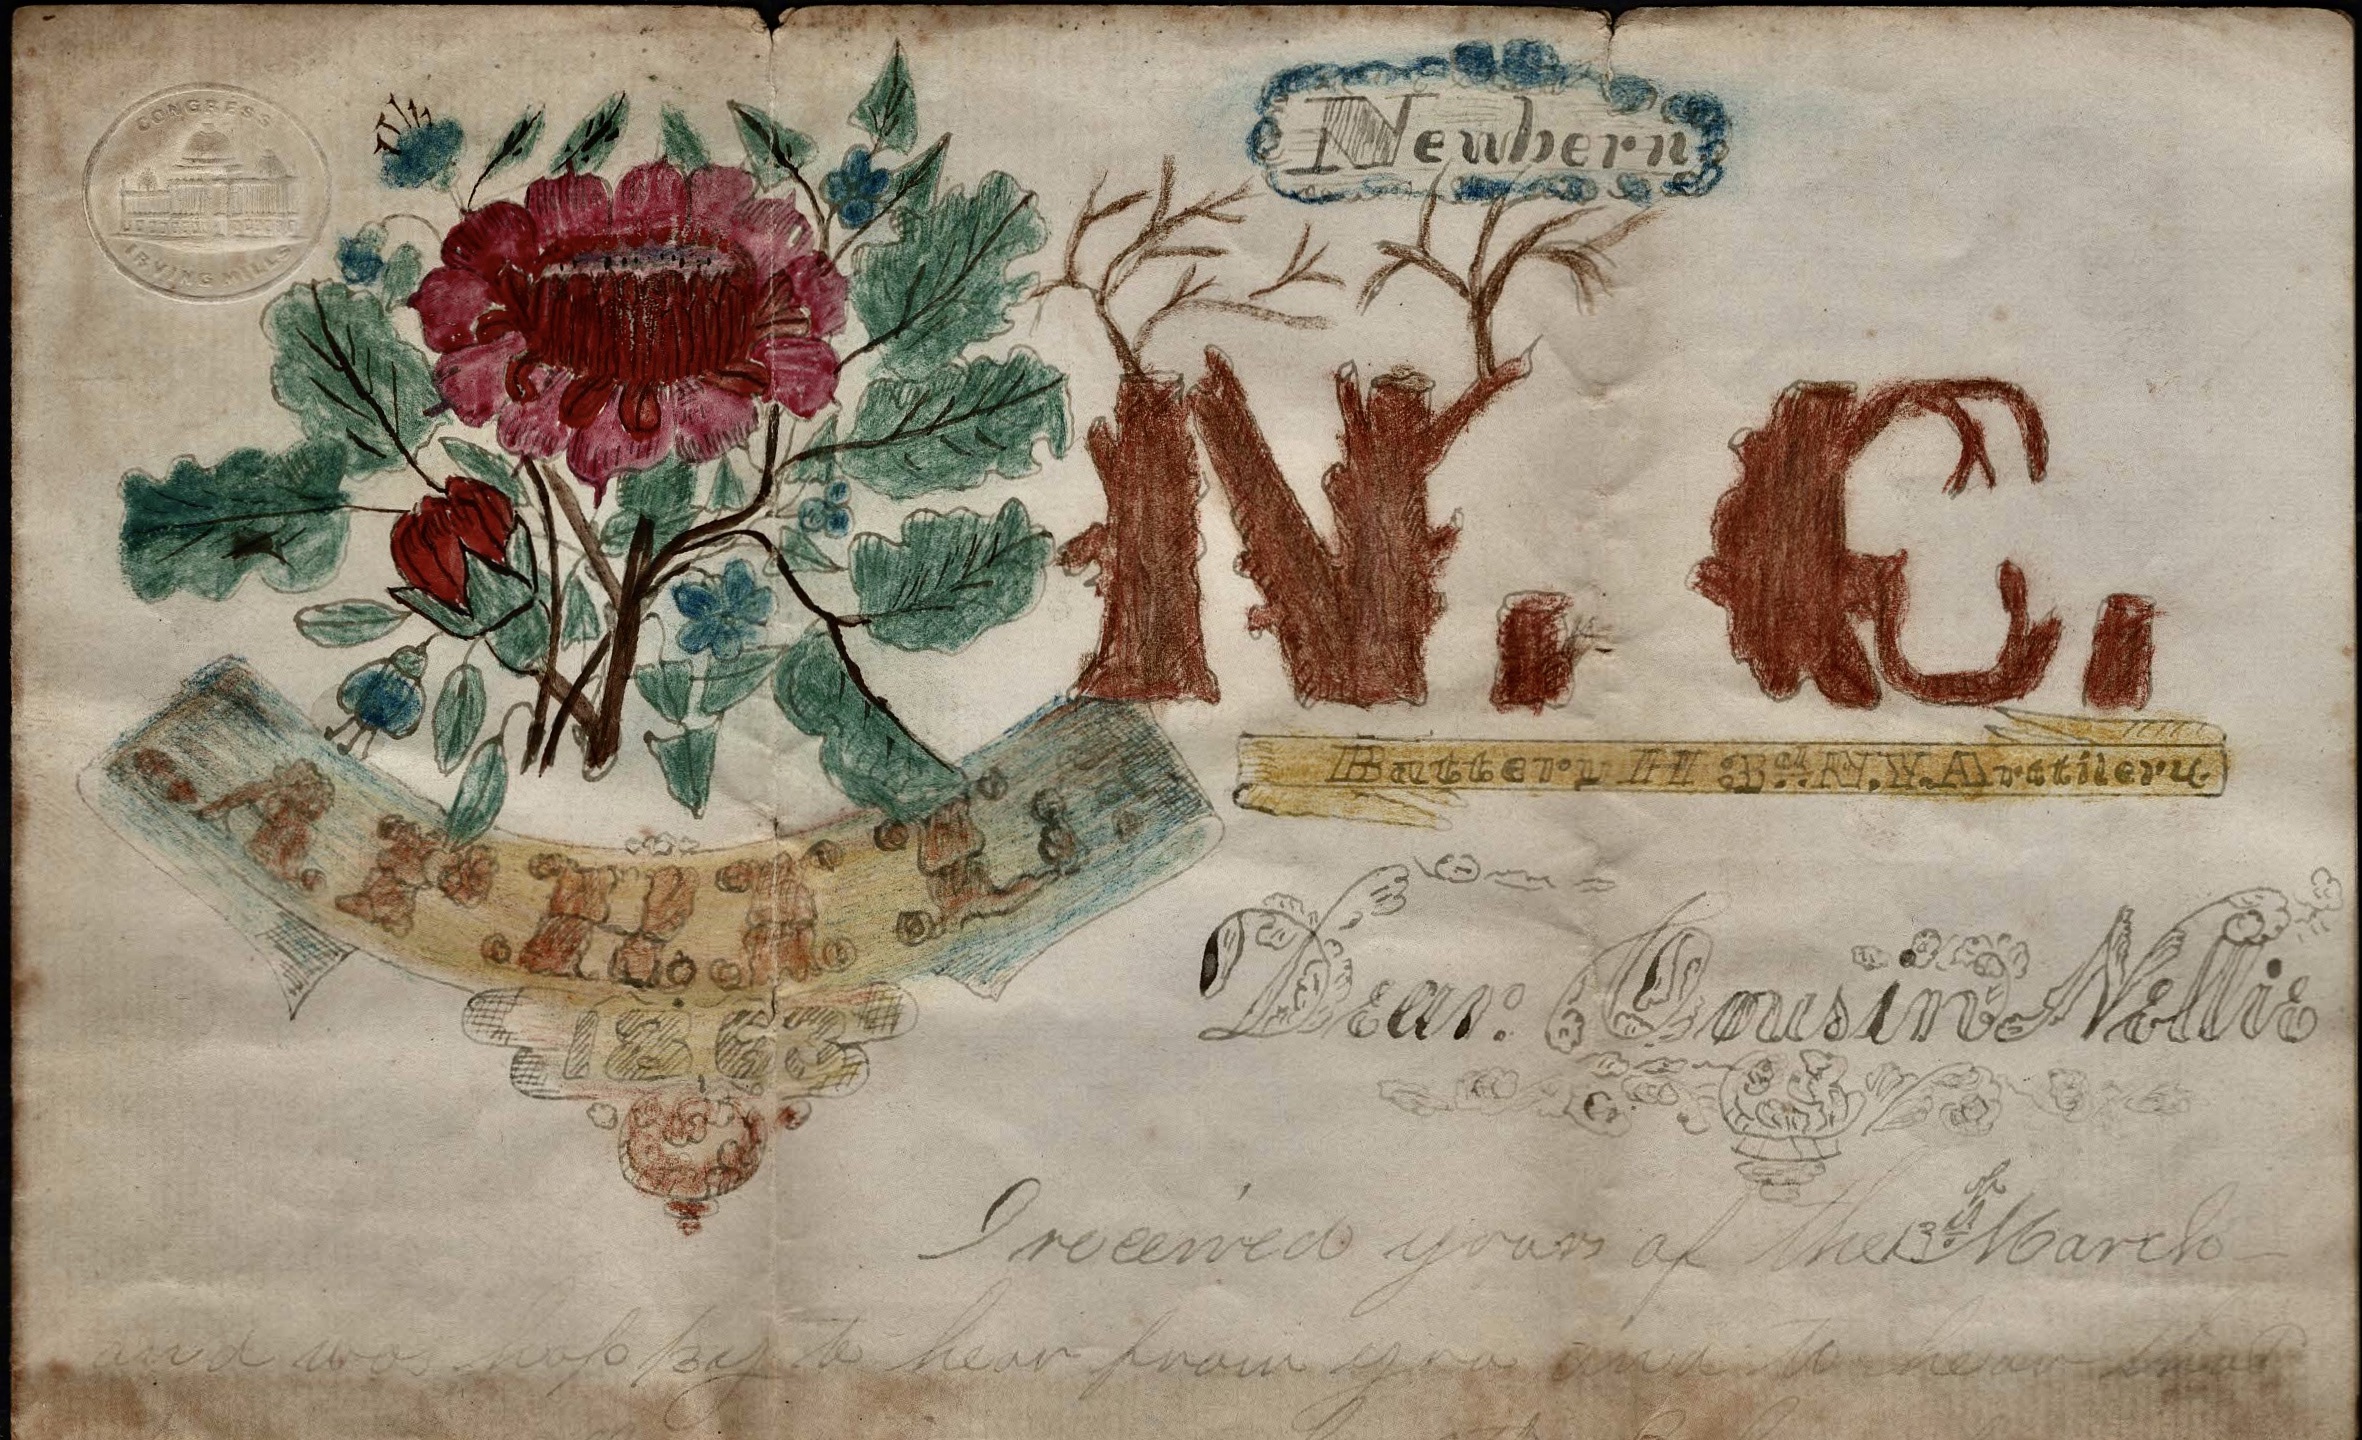 CONGRESS
IRVING MILLS
Newbern
N. C.
Battery H 3rd N.Y. Artilery
APRIL
1863
Dear Cousin Nellie
I received yours of the 13th March
and was happy to hear from you and to hear that